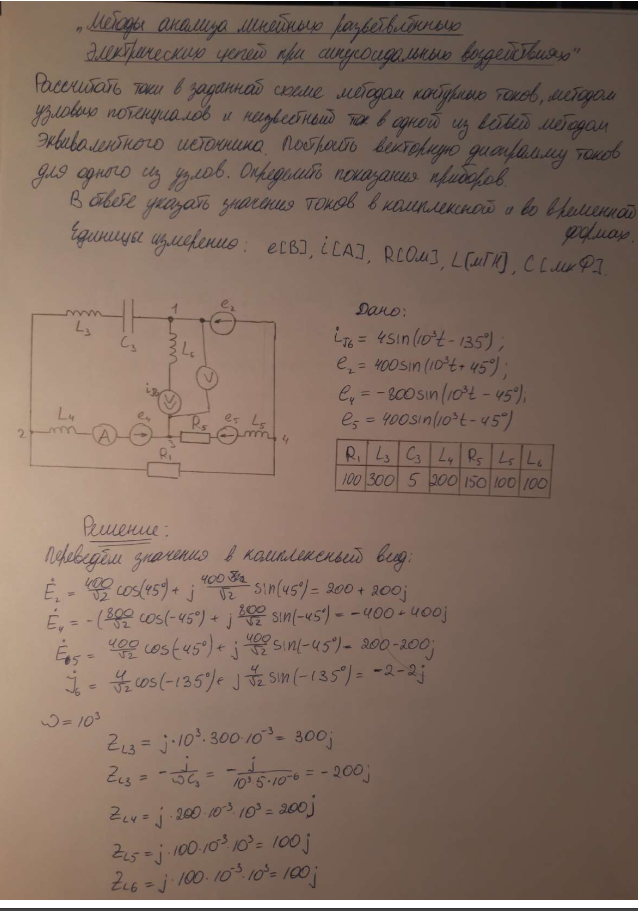 „Методы анализа линейных разветвлённых
электрических цепей при синусоидальных воздействиях"
Рассчитать токи в заданной схеме методом контурных токов, методом
узловых потенциалов и неизвестный ток в одной из ветвей методом
эквивалентного источника. Построить векторную диаграмму токов
для одного из узлов. Определить показания приборов.
В ответе указать значения токов в комплексной и во временной
формах.
Единицы измерения: e[В], i[А], R[Ом], L[мГн], C[мкФ].
L3 C3 1 e2
L6
V
iJ6 V
L4 e4 R5 e5 L5
2 A 3 4
R1
Дано:
iJ6 = 4sin(10³t - 135°);
e2 = 400sin(10³t + 45°);
e4 = -800sin(10³t - 45°);
e5 = 400sin(10³t - 45°)
R1 L3 C3 L4 R5 L5 L6
100 300 5 200 150 100 100
Решение:
Переведём значения в комплексный вид:
Ė2 = 400/√2 cos(45°) + j 400/√2 sin(45°) = 200 + 200j
Ė4 = -(800/√2 cos(-45°) + j 800/√2 sin(-45°) = -400 + 400j
Ė5 = 400/√2 cos(-45°) + j 400/√2 sin(-45°) = 200 - 200j
J̇6 = 4/√2 cos(-135°) + j 4/√2 sin(-135°) = -2 - 2j
ω = 10³
ZL3 = j·10³·300·10⁻³ = 300j
ZL3 = - j/ωC3 = - j/10³5·10⁻⁶ = -200j
ZL4 = j·200·10⁻³·10³ = 200j
ZL5 = j·100·10⁻³·10³ = 100j
ZL6 = j·100·10⁻³·10³ = 100j